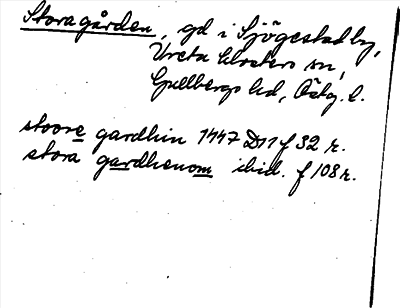 Storagården, gd i Sjögestad by,
Vreta klosters sn,
Gullbergs hd, Östg. l.
stoore gardhin 1447 D11 f 32 r.
stora gardhenom ibid. f 108 r.